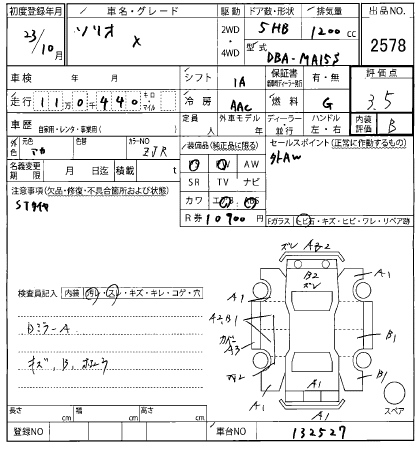 初度登録年月 車名・グレード 駆動 ドア数・形状 排気量 出品NO.
23/10月 ソリオ X 2WD・4WD 5HB 1200cc 2578
型式 DBA-MA15S
車検 年 月 シフト IA 保証書 有・無 評価点
走行 11万0千440 キロ・マイル 冷房 AAC 燃料 G 3.5
車歴 自家用・レンタ・事業用( ) 定員 人 外車モデル 年 ディーラー・並行 ハンドル 左・右 内装評価 B
外色 元色 色替 カラーNO ZJR
装備品(純正品に限る) セールスポイント(正常に作動するもの)
AW 外AW
名義変更期限 月 日迄 積載 t
SR TV ナビ
注意事項(欠品・修復・不具合箇所および状態)
カワ エアB ABS
Sタイヤ
R券 10900円
Fガラス ヒビ石・キズ・ヒビ・ワレ・リペア跡
ズレ A2-2
B2
ズレ
A1
A1
検査員記入 内装 汚レ・スレ・キズ・キレ・コゲ・穴
A2、B1
カバー
A3
B1
DミラーA
キズ、B、
A1
B1
A1
A1
A1
スペア
長さ cm 幅 cm 高さ cm
登録NO 車台NO 132527